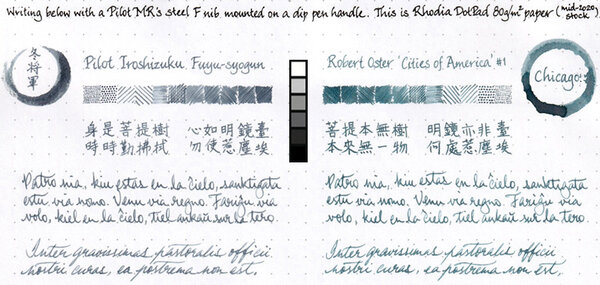 Writing below with a Pilot MR's steel F nib mounted on a dip pen handle. This is Rhodia DotPad 80g/m² paper (mid-2020 stock)
冬將軍
Pilot Iroshizuku Fuyu-syogun
身是菩提樹 心如明鏡臺
時時勤拂拭 勿使惹塵埃
Patro nia, kiu estas en la ĉielo, sanktigata
estu via nomo. Venu via regno. Fariĝu via
volo, kiel en la ĉielo, tiel ankaŭ sur la tero.
Inter gravissimas pastoralis officii
nostri curas, ea postrema non est,
Robert Oster 'Cities of America' #1
Chicago
菩提本無樹 明鏡亦非臺
本來無一物 何處惹塵埃
Patro nia, kiu estas en la ĉielo, sanktigata
estu via nomo. Venu via regno. Fariĝu via
volo, kiel en la ĉielo, tiel ankaŭ sur la tero.
Inter gravissimas pastoralis officii
nostri curas, ea postrema non est,